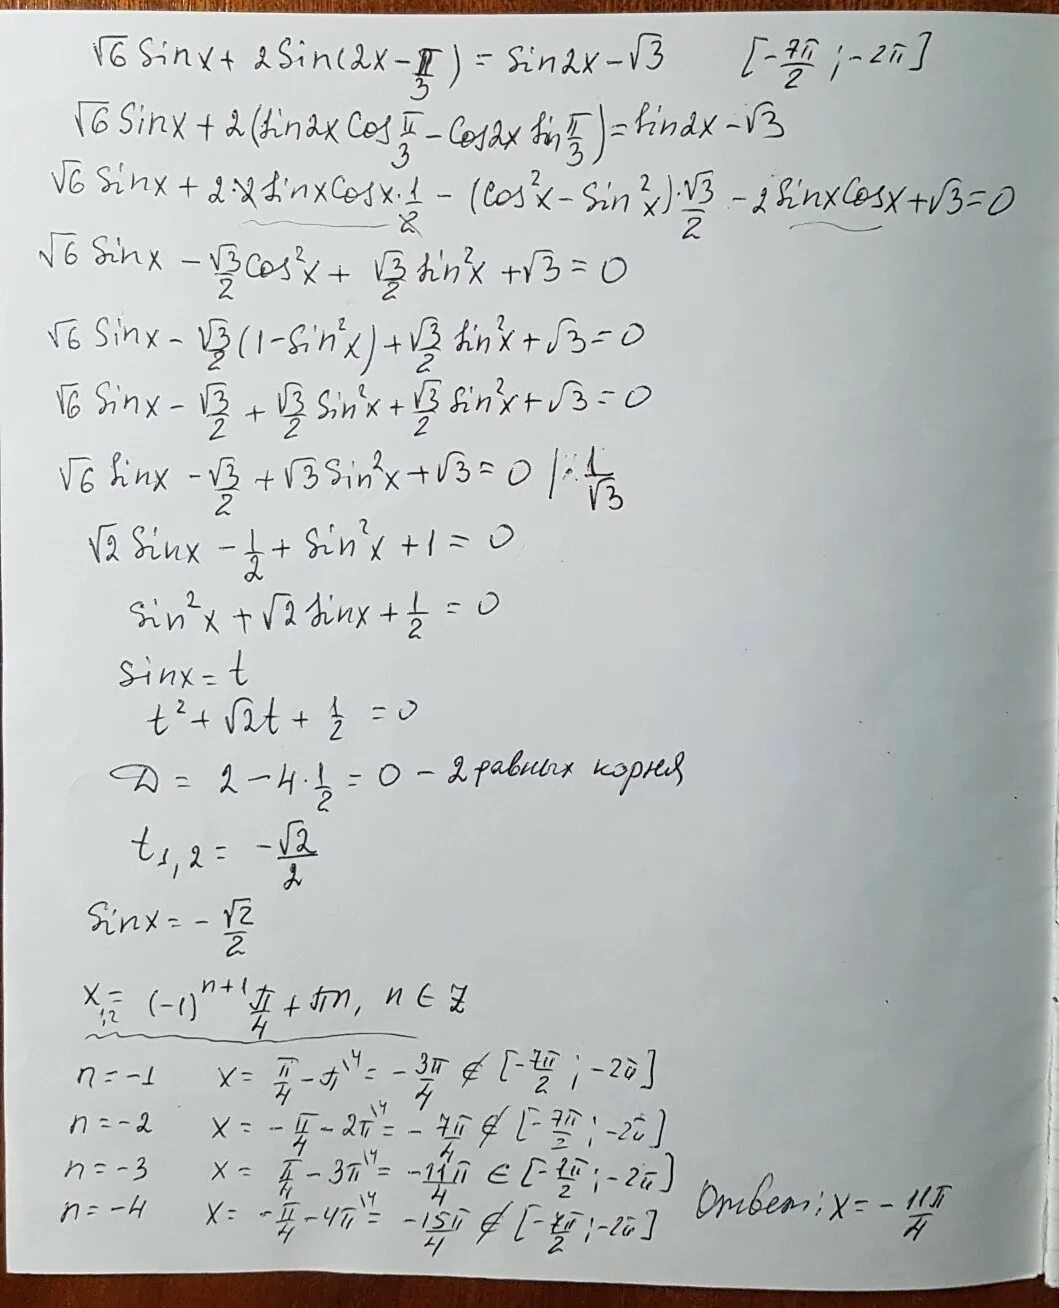 √6 Sinx + 2Sin(2x − π/3) = Sin2x − √3 [−7π/2 ; −2π]
√6 Sinx + 2(Sin2x Cos π/3 − Cos2x Sin π/3) = Sin2x − √3
√6 Sinx + 2·2SinxCosx·1/2 − (Cos²x − Sin²x)·√3/2 − 2SinxCosx + √3 = 0
√6 Sinx − √3/2 Cos²x + √3/2 Sin²x + √3 = 0
√6 Sinx − √3/2 (1 − Sin²x) + √3/2 Sin²x + √3 = 0
√6 Sinx − √3/2 + √3/2 Sin²x + √3/2 Sin²x + √3 = 0
√6 Sinx − √3/2 + √3 Sin²x + √3 = 0 | · 1/√3
√2 Sinx − 1/2 + Sin²x + 1 = 0
Sin²x + √2 Sinx + 1/2 = 0
Sinx = t
t² + √2t + 1/2 = 0
D = 2 − 4·1/2 = 0 − 2 равных корня
t₁,₂ = −√2/2
Sinx = −√2/2
x₁,₂ = (−1)ⁿ⁺¹ π/4 + πn, n ∈ Z
n = −1 x = π/4 − π\⁴ = −3π/4 ∉ [−7π/2 ; −2π]
n = −2 x = −π/4 − 2π\⁴ = −7π/4 ∉ [−7π/2 ; −2π]
n = −3 x = π/4 − 3π\⁴ = −11π/4 ∈ [−7π/2 ; −2π]
n = −4 x = −π/4 − 4π\⁴ = −15π/4 ∉ [−7π/2 ; −2π]
Ответ: x = −11π/4